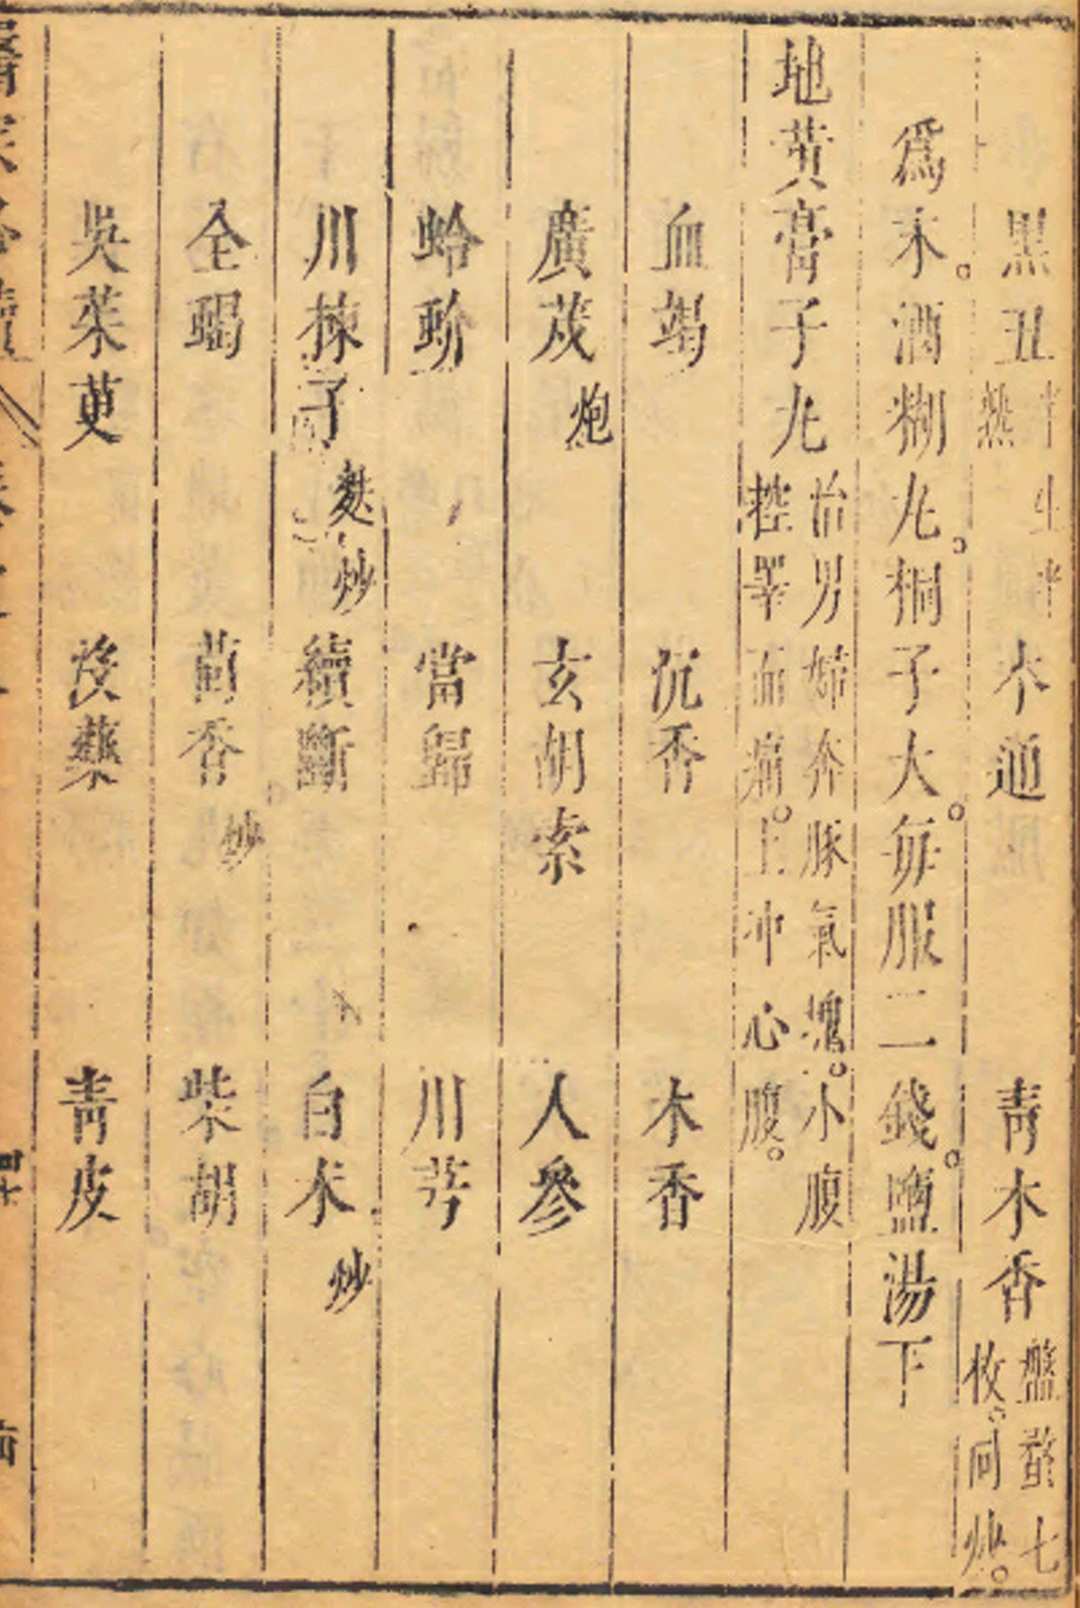 黑丑半生半熟　木通　青木香盤蝥七枚。同炒。
爲末。酒糊丸。桐子大。每服二錢。鹽湯下
地黃膏子丸治男婦奔豚氣塊。小腹控睪而痛。上冲心腹。
血竭　沉香　木香
廣茂炮　玄胡索　人參
蛤蚧　當歸　川芎
川楝子麩炒　續斷　白朮炒
全蝎　茴香炒　柴胡
吳茱萸　沒藥　青皮